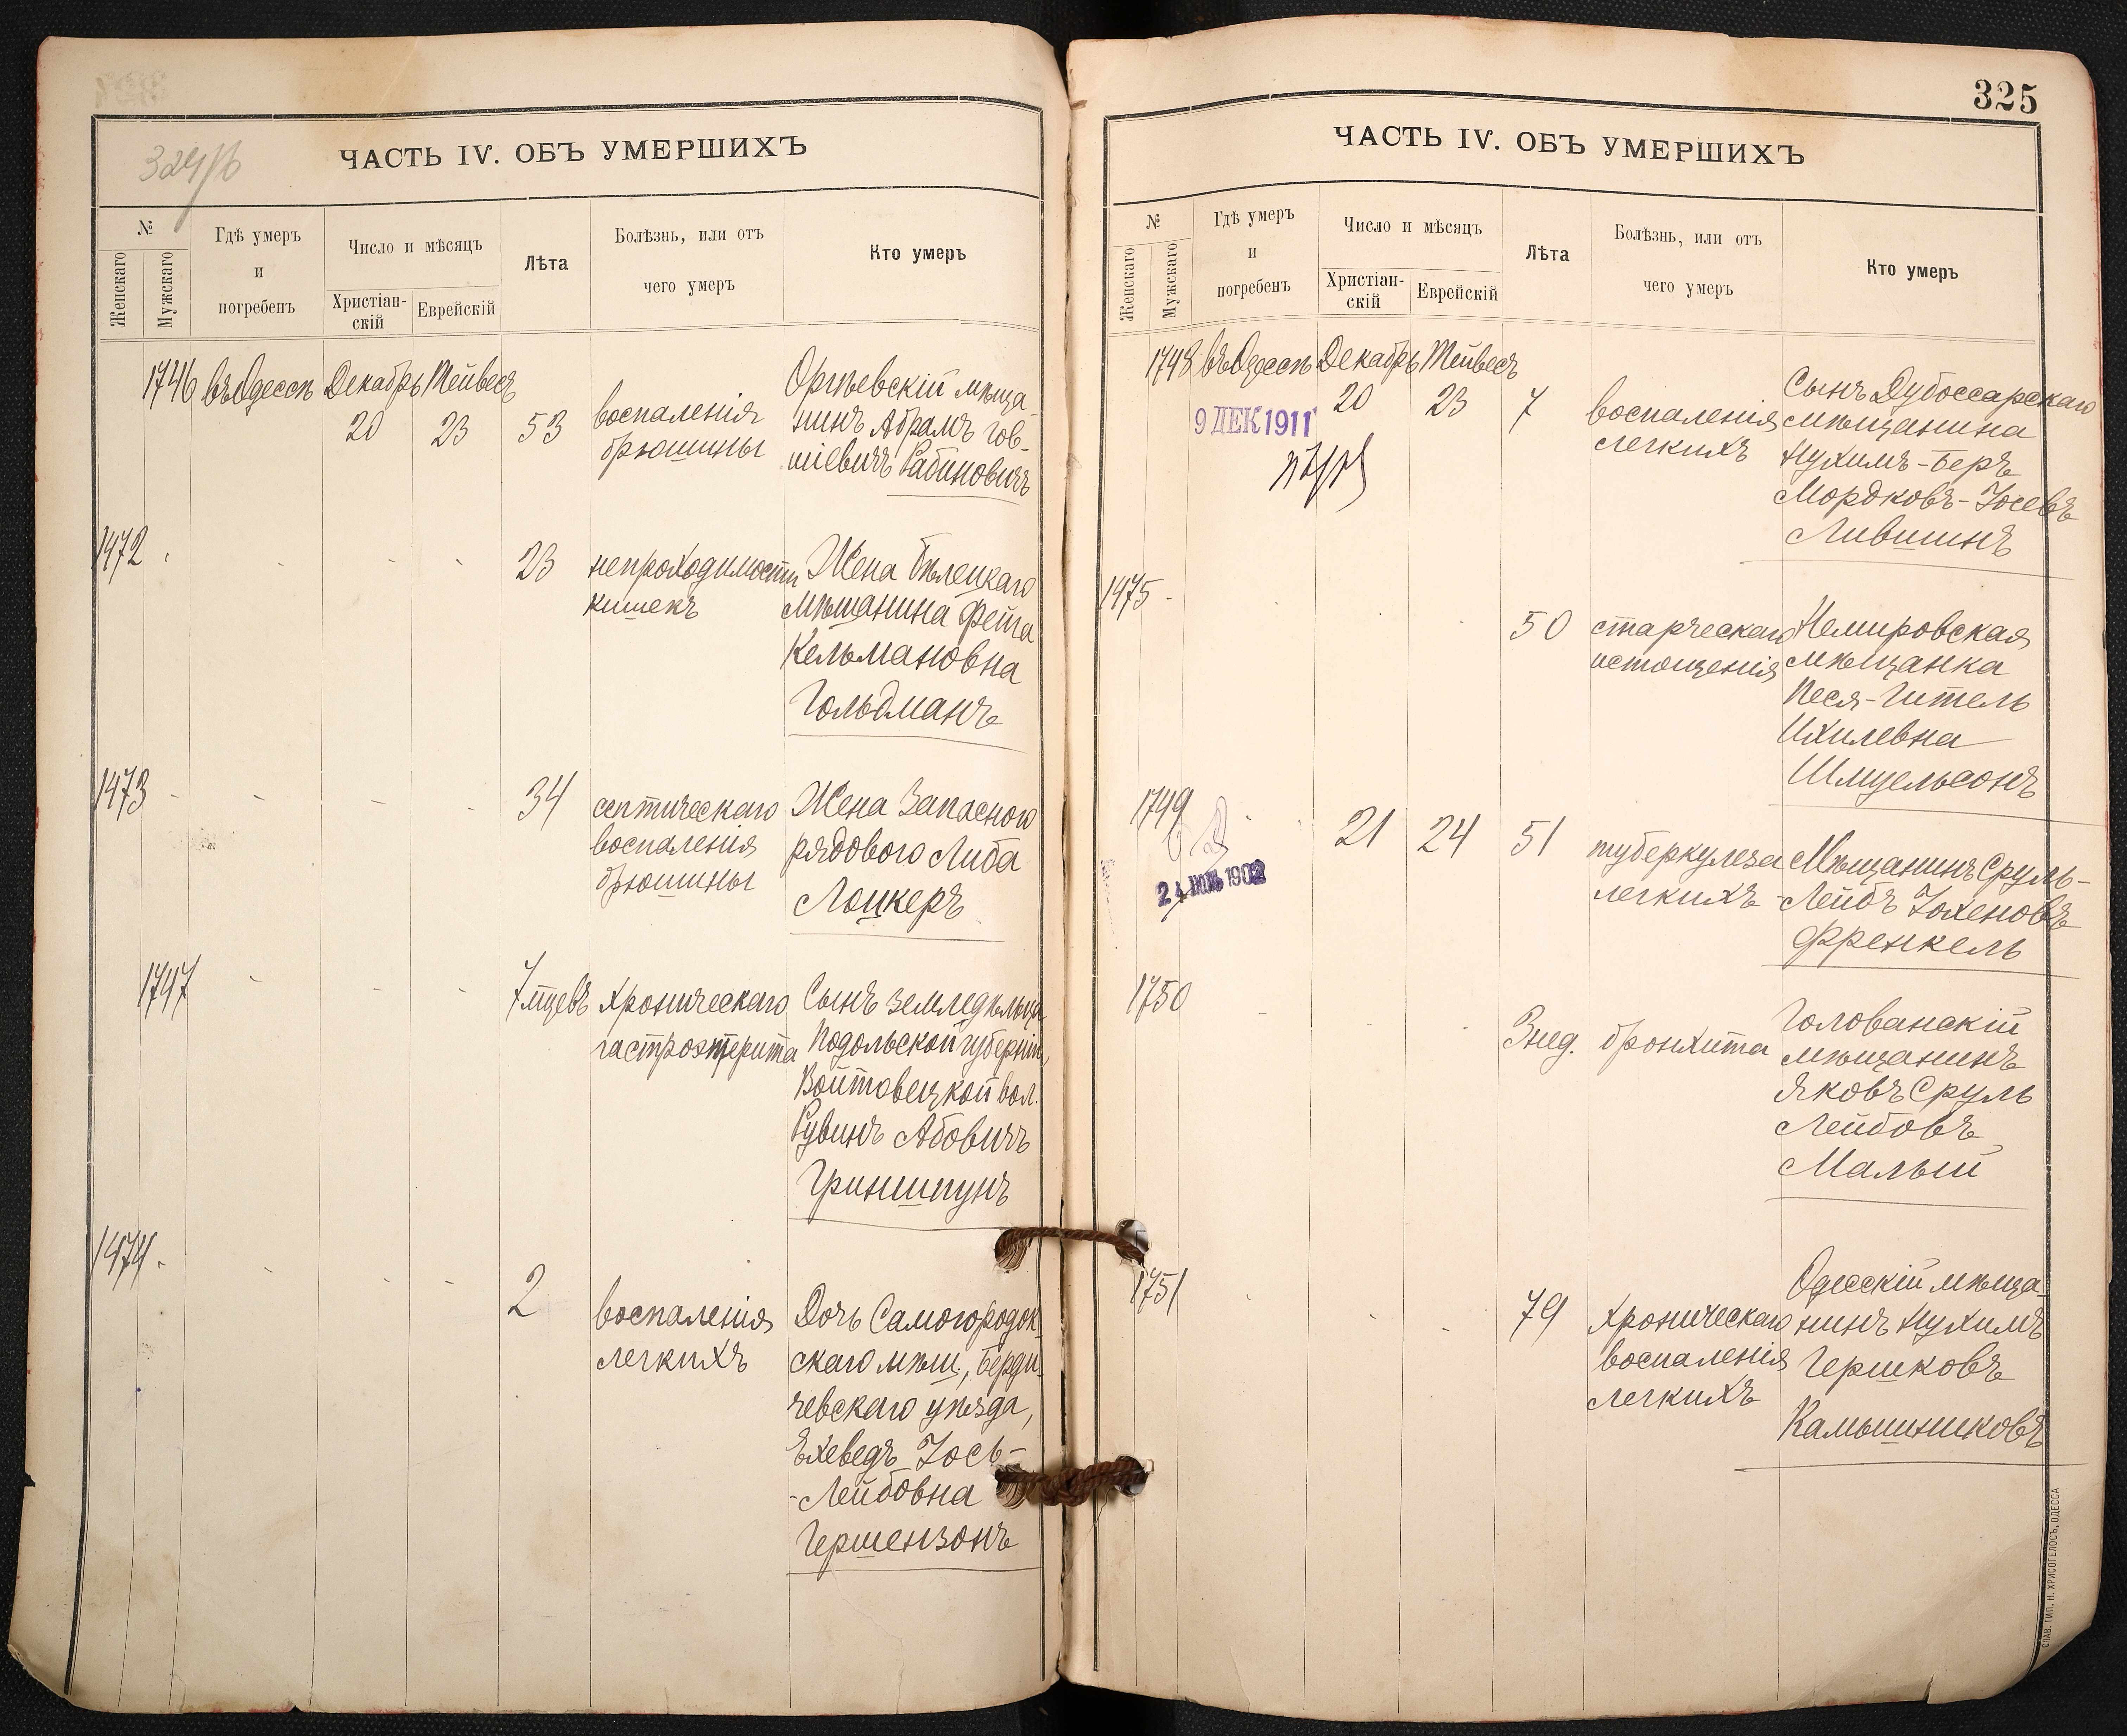 324/б
ЧАСТЬ IV. ОБЪ УМЕРШИХЪ
№
Женскаго
Мужскаго
Гдѣ умеръ
и
погребенъ
Число и мѣсяцъ
Христіан-
скій
Еврейскій
Лѣта
Болѣзнь, или отъ
чего умеръ
Кто умеръ
1746 въ Одессѣ Декабрь Тейвесъ
20 23 53
воспаленія
брюшины
Оргѣевскій мѣща-
нинъ Абрамъ Іов-
шіевичъ Рабиновичъ
1472
23
непроходимости
кишекъ
Жена Бѣлецкаго
мѣщанина Фейга
Кельмановна
Гольдманъ
1473
34
септическаго
воспаленія
брюшины
Жена Запасного
рядового Либа
Лоцкеръ
1747
7 мцевъ
хроническаго
гастроэнтерита
Сынъ земледѣльца
Подольской губерніи,
Войтовецкой вол.
Рувинъ Абовичъ
Гриншпунъ
1474
2
воспаленія
легкихъ
Дочь Самогородок-
скаго мѣщ., Берди-
чевскаго уѣзда,
Ехеведъ Іось-
-Лейбовна
Гершензонъ
325
ЧАСТЬ IV. ОБЪ УМЕРШИХЪ
№
Женскаго
Мужскаго
Гдѣ умеръ
и
погребенъ
Число и мѣсяцъ
Христіан-
скій
Еврейскій
Лѣта
Болѣзнь, или отъ
чего умеръ
Кто умеръ
1748 въ Одессѣ Декабрь Тейвесъ
20 23 7
9 ДЕК 1911
воспаленія
легкихъ
Сынъ Дубоссарскаго
мѣщанина
Нухимъ-Беръ
Мордковъ-Іосевъ
Лившинъ
1475
50
старческаго
истощенія
Немировская
мѣщанка
Песя-Гитель
Ихилевна
Шмуельсонъ
1749
21 24 51
24 1902
туберкулеза
легкихъ
Мѣщанинъ Сруль-
-Лейбъ Іохеновъ
Френкель
1750
3 нед.
бронхита
Голованскій
мѣщанинъ
Яковъ Сруль
Лейбовъ
Малый
1751
79
хроническаго
воспаленія
легкихъ
Одесскій мѣща-
нинъ Нухимъ
Гершковъ
Камышниковъ
СЛАВ. ТИП. Н. ХРИСОГЕЛОСЪ, ОДЕССА